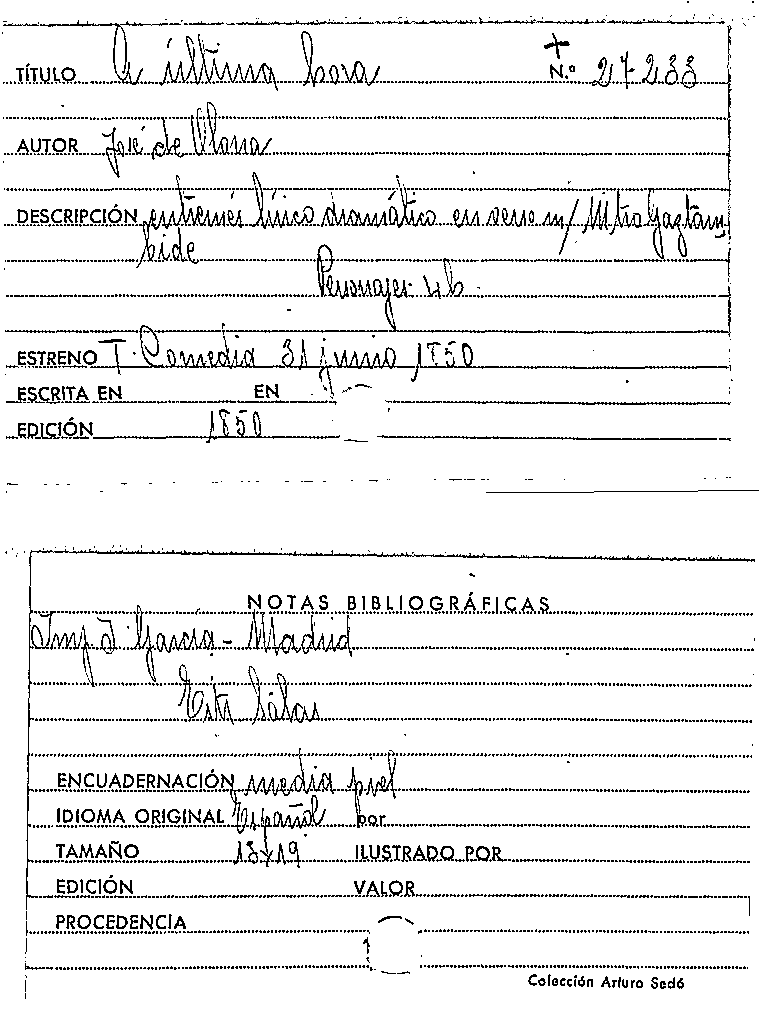 TÍTULO A última hora + N.º 27233
AUTOR José de Olona
DESCRIPCIÓN entremés lírico dramático en verso m/ Mtro Gaztam
bide
Personajes 4 h.
ESTRENO T. Comedia 31 junio 1850
ESCRITA EN EN
EDICIÓN 1850
NOTAS BIBLIOGRÁFICAS
Imp J García - Madrid
ENCUADERNACIÓN media piel
IDIOMA ORIGINAL Español por
TAMAÑO 13x19 ILUSTRADO POR
EDICIÓN VALOR
PROCEDENCIA
1
Colección Arturo Sedó